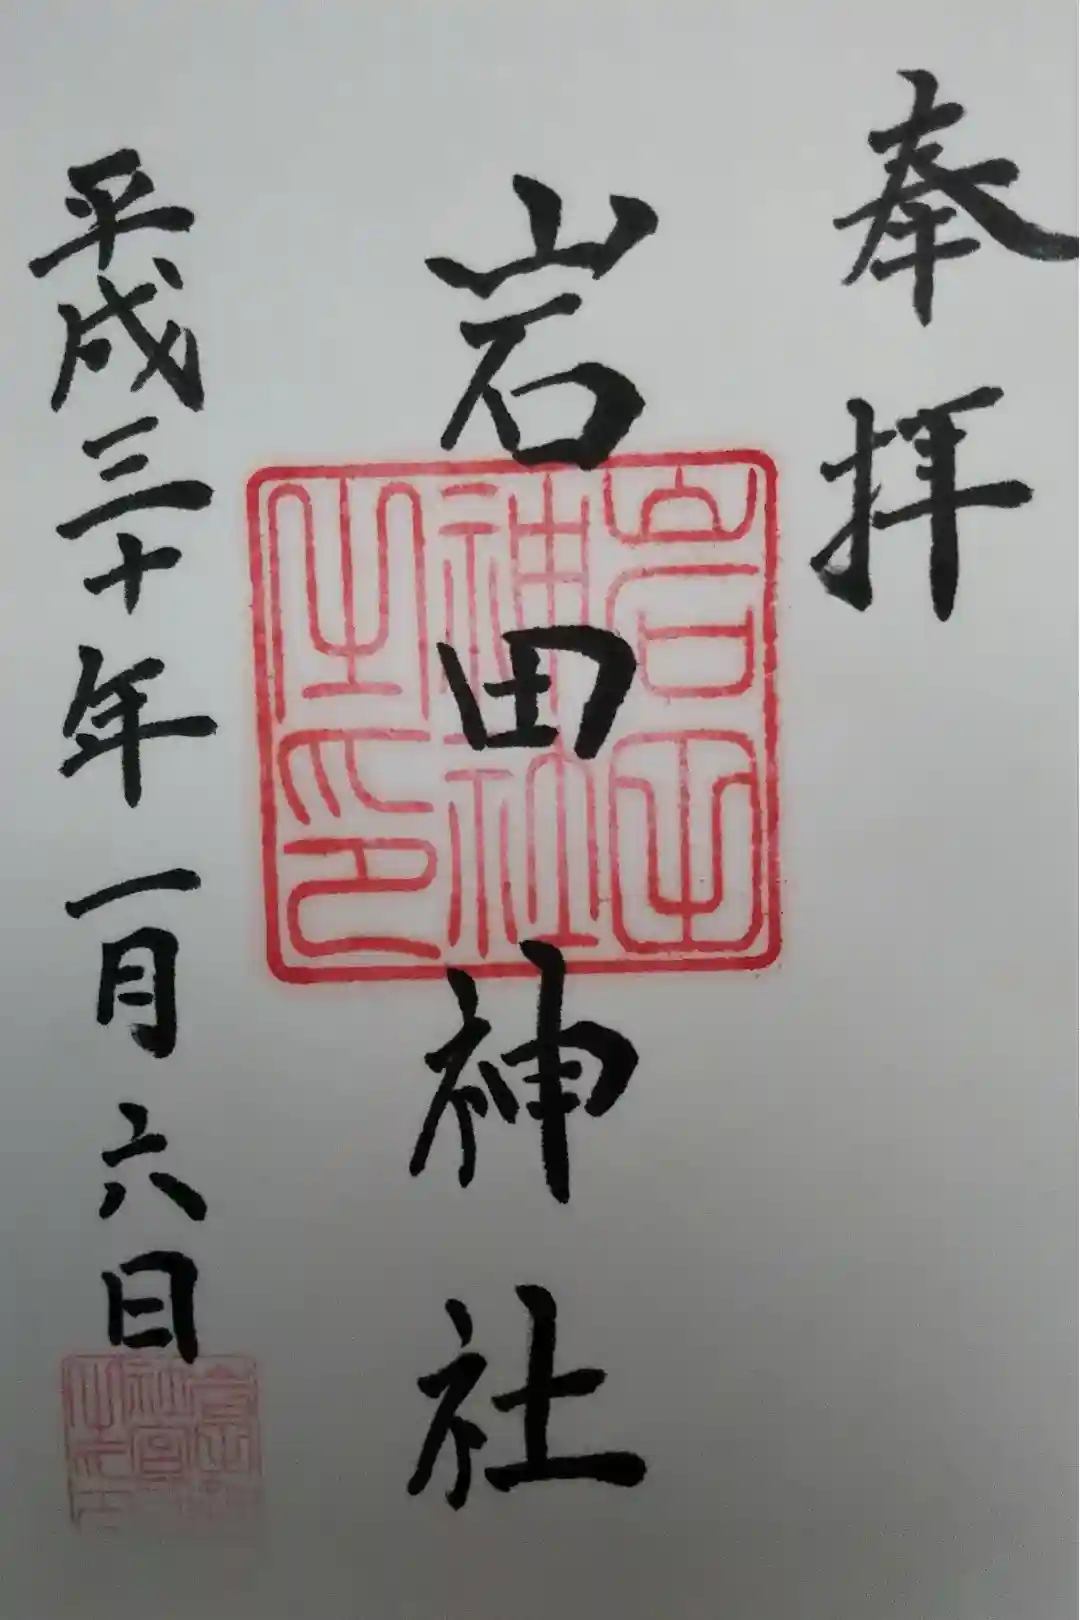 奉拝
岩田神社
岩田神社之印
平成三十年一月六日